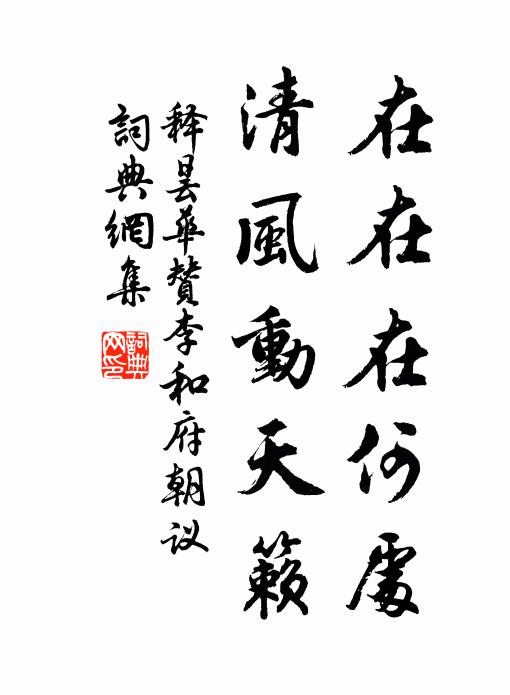 在在在何處
清風動天籟
释曇華贊李和府朝议
詞典網集
詞典
网印